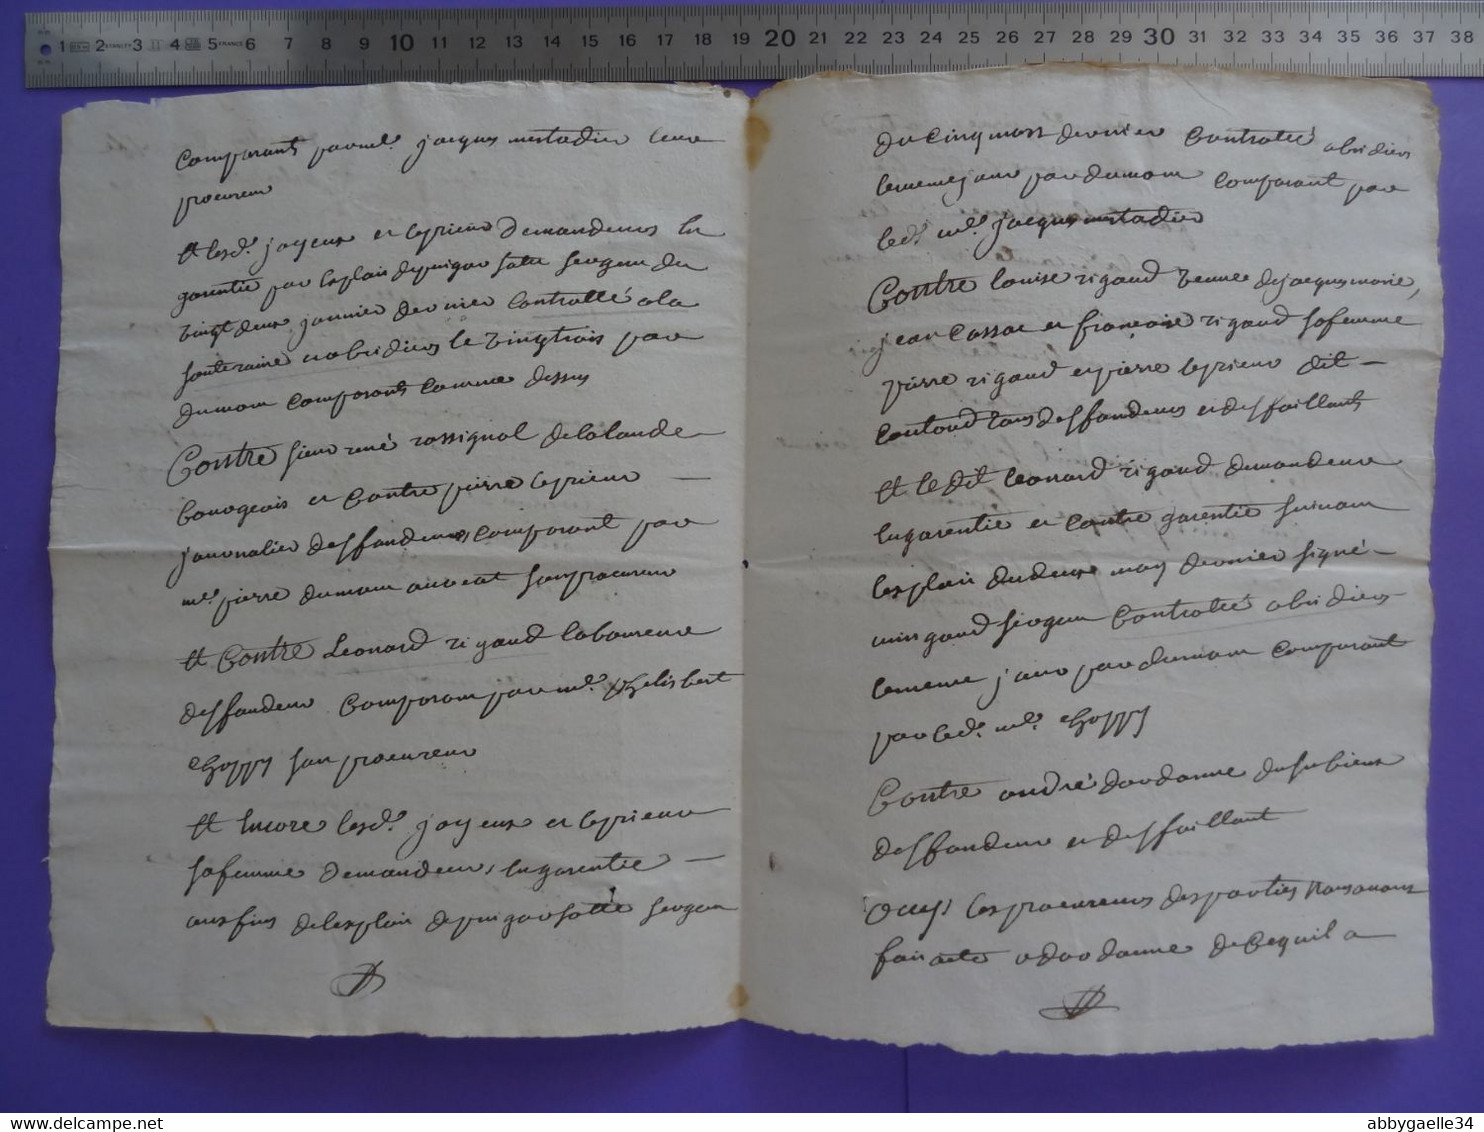 1 2 3 4 5 FRANCE 6 7 8 9 10 11 12 13 14 15 16 17 18 19 20 21 22 23 24 25 26 27 28 29 30 31 32 33 34 35 36 37 38
comparants par me. jacques mestadier leur
procureur
et lesds. joyeux et leprieur demandeurs en
garentie par lexploit de puigau sergen du
vingt deux janvier dernier controllé a la
souteraine et abridiers le vingt trois par
dumom comparants comme dessus
Contre sieur rené rossignol delalande
bourgeois et Contre pierre leprieur
journalier deffandeurs comparant par
me. pierre dumom avocat son procureur
et Contre Leonard rigaud laboureur
deffandeur comparom par me. philisbert
choppy son procureur
et encore lesds. joyeux et leprieur
sa femme demandeurs en garentie
aux fins de lexploit de puigau sergen
du cinq mars dernier Controllé abridiers
le meme jour par dumom comparant par
led. me. jacques mestadier
Contre louise rigaud veuve de jacques morie,
jean Cassac et françoise rigaud sa femme
pierre rigaud et pierre leprieur dit
coutoud tous deffandeurs et deffaillants
et le dit leonard rigaud demandeur
en garentie et contre garentie suivant
lexploit du deux may dernier signé
mingaud sergen Controllé abridiers
le meme jour par dumom comparant
par led. me. choppy
Contre andré dardanne dusubieux
deffandeur et deffaillant
Ouys les procureurs des parties Nous avons
fait acte a dardanne de ce quil a
Delcampe.net
abbygaelle34